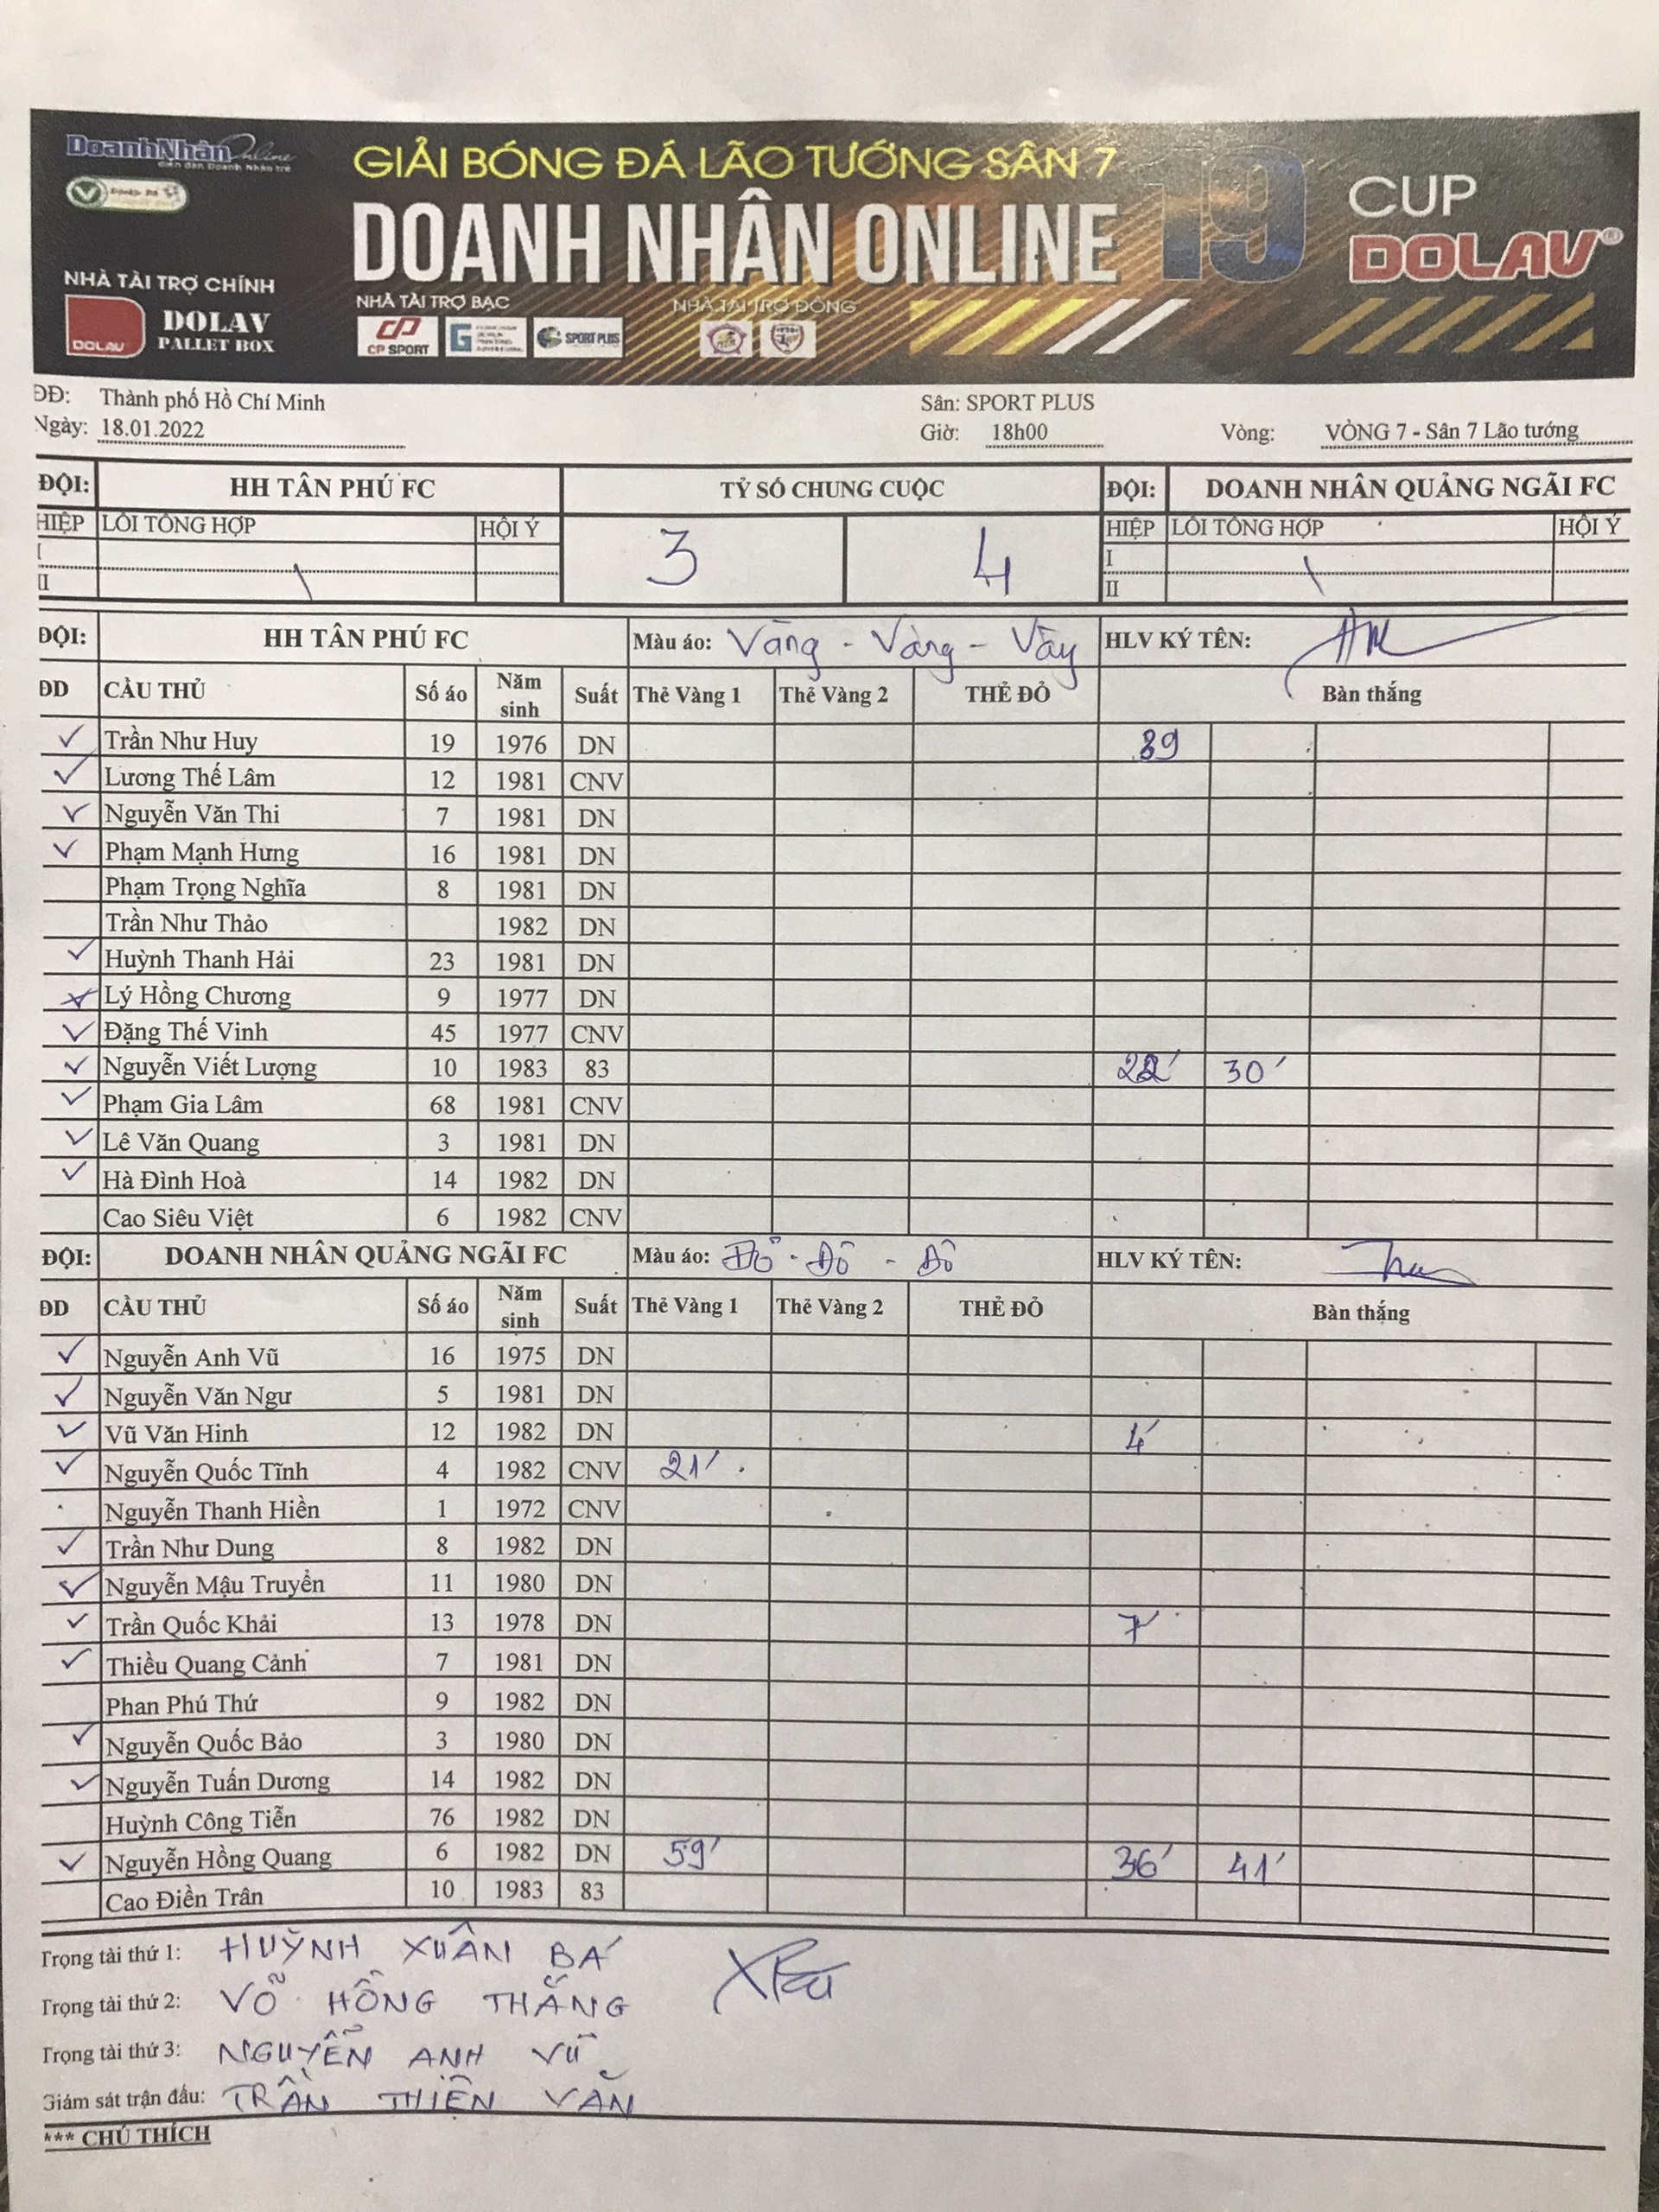 DoanhNhân Online
diễn đàn Doanh Nhân trẻ
GIẢI BÓNG ĐÁ LÃO TƯỚNG SÂN 7
DOANH NHÂN ONLINE 19
CUP
DOLAV
NHÀ TÀI TRỢ CHÍNH
DOLAV
DOLAV
PALLET BOX
NHÀ TÀI TRỢ BẠC
CP SPORT
SPORT PLUS
NHÀ TÀI TRỢ ĐỒNG
ĐĐ: Thành phố Hồ Chí Minh Sân: SPORT PLUS
Ngày: 18.01.2022 Giờ: 18h00 Vòng: VÒNG 7 - Sân 7 Lão tướng
ĐỘI: HH TÂN PHÚ FC TỶ SỐ CHUNG CUỘC ĐỘI: DOANH NHÂN QUẢNG NGÃI FC
HIỆP LỖI TỔNG HỢP HỘI Ý 3 4 HIỆP LỖI TỔNG HỢP HỘI Ý
I I
II \ II \
ĐỘI: HH TÂN PHÚ FC Màu áo: Vàng - Vàng - Vây HLV KÝ TÊN:
ĐD CẦU THỦ Số áo Năm sinh Suất Thẻ Vàng 1 Thẻ Vàng 2 THẺ ĐỎ Bàn thắng
✓ Trần Như Huy 19 1976 DN 39
✓ Lương Thế Lâm 12 1981 CNV
✓ Nguyễn Văn Thi 7 1981 DN
✓ Phạm Mạnh Hưng 16 1981 DN
Phạm Trọng Nghĩa 8 1981 DN
Trần Như Thảo 1982 DN
✓ Huỳnh Thanh Hải 23 1981 DN
✓ Lý Hồng Chương 9 1977 DN
✓ Đặng Thế Vinh 45 1977 CNV
✓ Nguyễn Viết Lượng 10 1983 83 22' 30'
✓ Phạm Gia Lâm 68 1981 CNV
✓ Lê Văn Quang 3 1981 DN
✓ Hà Đình Hoà 14 1982 DN
Cao Siêu Việt 6 1982 CNV
ĐỘI: DOANH NHÂN QUẢNG NGÃI FC Màu áo: Đỏ - Đỏ - Đỏ HLV KÝ TÊN:
ĐD CẦU THỦ Số áo Năm sinh Suất Thẻ Vàng 1 Thẻ Vàng 2 THẺ ĐỎ Bàn thắng
✓ Nguyễn Anh Vũ 16 1975 DN
✓ Nguyễn Văn Ngư 5 1981 DN
✓ Vũ Văn Hinh 12 1982 DN 4'
✓ Nguyễn Quốc Tĩnh 4 1982 CNV 21'
Nguyễn Thanh Hiền 1 1972 CNV
✓ Trần Như Dung 8 1982 DN
✓ Nguyễn Mậu Truyển 11 1980 DN
✓ Trần Quốc Khải 13 1978 DN 7'
✓ Thiều Quang Cảnh 7 1981 DN
Phan Phú Thứ 9 1982 DN
✓ Nguyễn Quốc Bảo 3 1980 DN
✓ Nguyễn Tuấn Dương 14 1982 DN
Huỳnh Công Tiễn 76 1982 DN
✓ Nguyễn Hồng Quang 6 1982 DN 59' 36' 41'
Cao Điền Trân 10 1983 83
Trọng tài thứ 1: HUỲNH XUÂN BÁ
Trọng tài thứ 2: VÕ HỒNG THẮNG
Trọng tài thứ 3: NGUYỄN ANH VŨ
Giám sát trận đấu: TRẦN THIỆN VĂN
*** CHÚ THÍCH